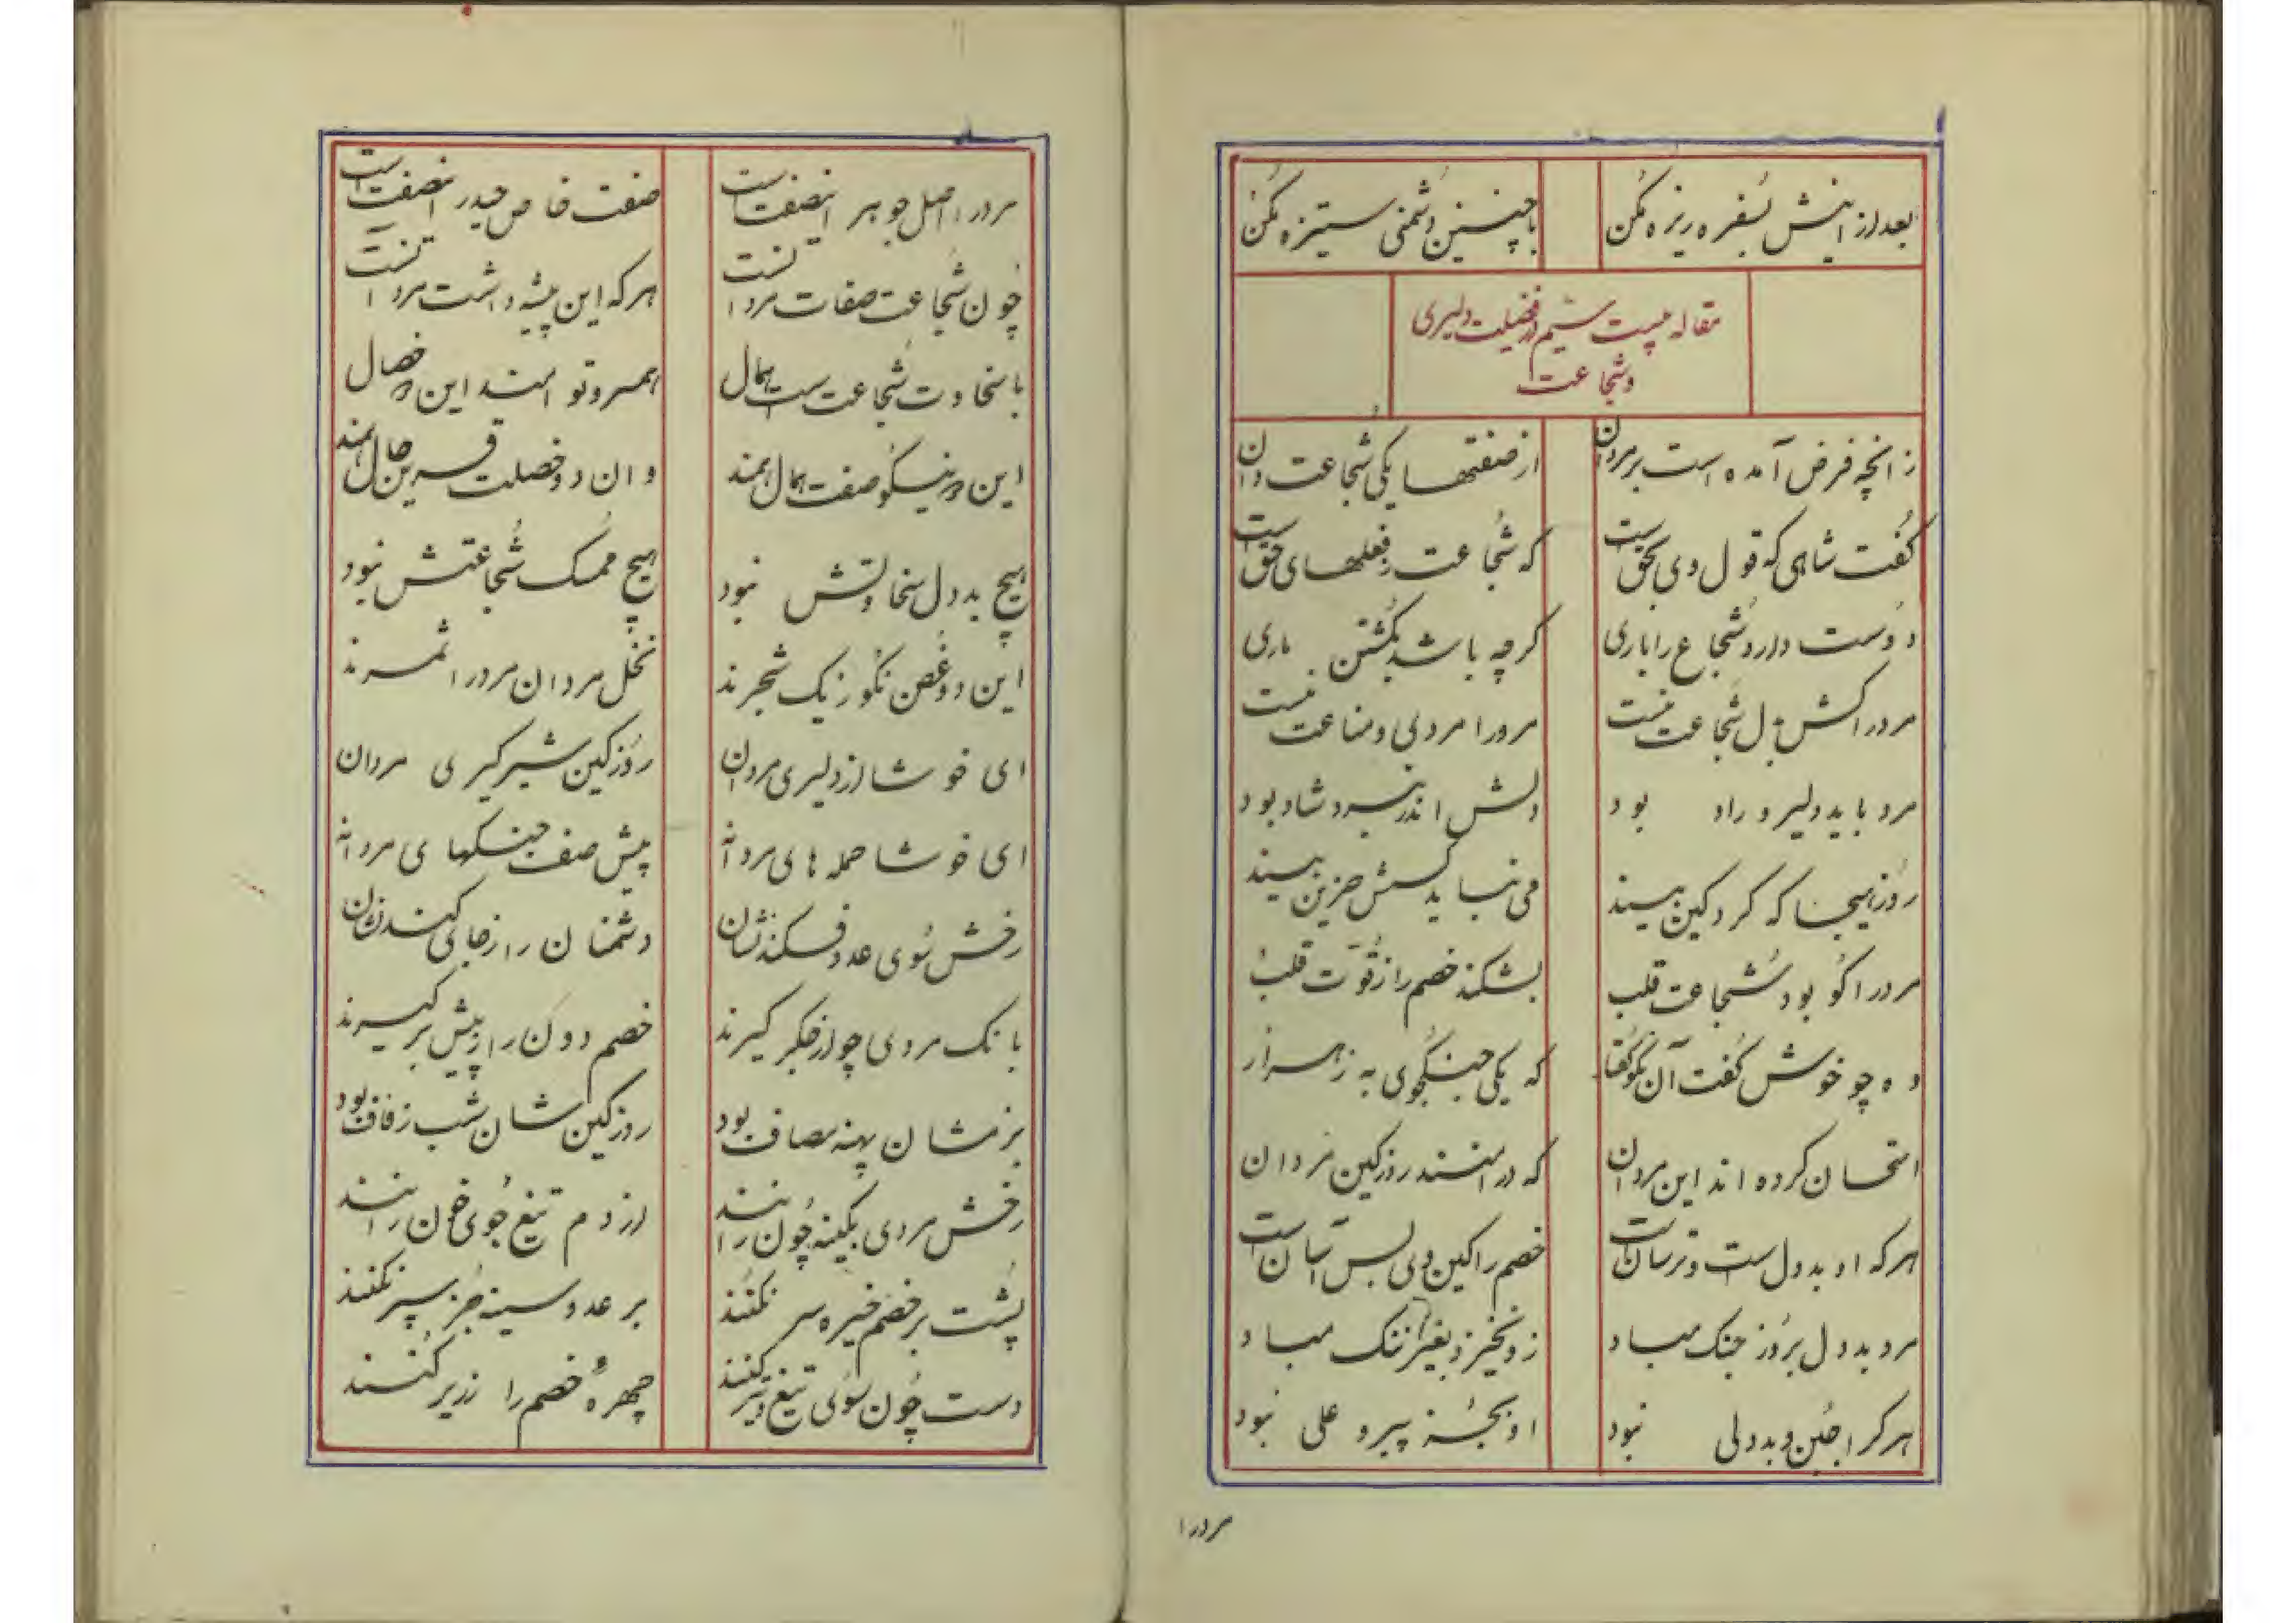 بعد ازینش بسفره ریزه مکن
با چنین دشمنی ستیزه مکن
مقاله بیست ششم در فضیلت دلیری
و شجاعت
زانچه فرض آمده است بر مردان
از صفتها یکی شجاعت دان
گفت شاهی که قول وی بحق است
که شجاعت ز فعلهای حق است
دوست دارد شجاع را باری
گر چه باشد بکشتن ماری
مرد را کش بدل شجاعت نیست
مرو را مردیی و مناعت نیست
مرد باید دلیر و راد بود
دلش اندر نبرد شاد بود
روز هیجا که گرد کین بیند
می نباید کسش حزین بیند
مرد را کو بود شجاعت قلب
بشکند خصم را ز قوت قلب
وه چو خوش گفت آن نکو گفتار
که یکی جنگجوی به ز هزار
امتحان کرده اند این مردان
که در آیند روز کین مردان
هر که او بددل است و ترسان است
خصم را کین وی بس آسان است
مرد بددل بروز جنگ مباد
زو نخیزد بغیر ننگ مباد
هر کرا جبن و بددلی نبود
او بجز پیرو علی نبود
مرد را
مرد را اصل جوهر این صفت است
صفت خاص حیدر این صفت است
چون شجاعت صفات مردانست
هر که این پیشه داشت مرد آنست
با سخاوت شجاعت است همال
همرو توامند این دو خصال
این دو نیکو صفت همال همند
وان دو خصلت قرین حال همند
هیچ بددل سخاوتش نبود
هیچ ممسک شجاعتش نبود
این دو غصن نکو ز یک شجرند
نخل مردان مرد را ثمرند
ای خوشا از دلیری مردان
روز کین شیر گیری مردان
ای خوشا حمله های مردانه
پیش صف جنگهای مردانه
رخش سوی عدو فکندنشان
دشمنان را ز جای کندنشان
بانگ مردی چو از جگر گیرند
خصم دون را ز پیش بر گیرند
بزمشان پهنه مصاف بود
روز کین شان شب زفاف بود
رخش مردی بکینه چون رانند
از دم تیغ جوی خون رانند
پشت بر خصم خیره سر نکنند
بر عدو سینه جز سپر نکنند
دست چون سوی تیغ و تیر کنند
چهرهٔ خصم را زریر کنند